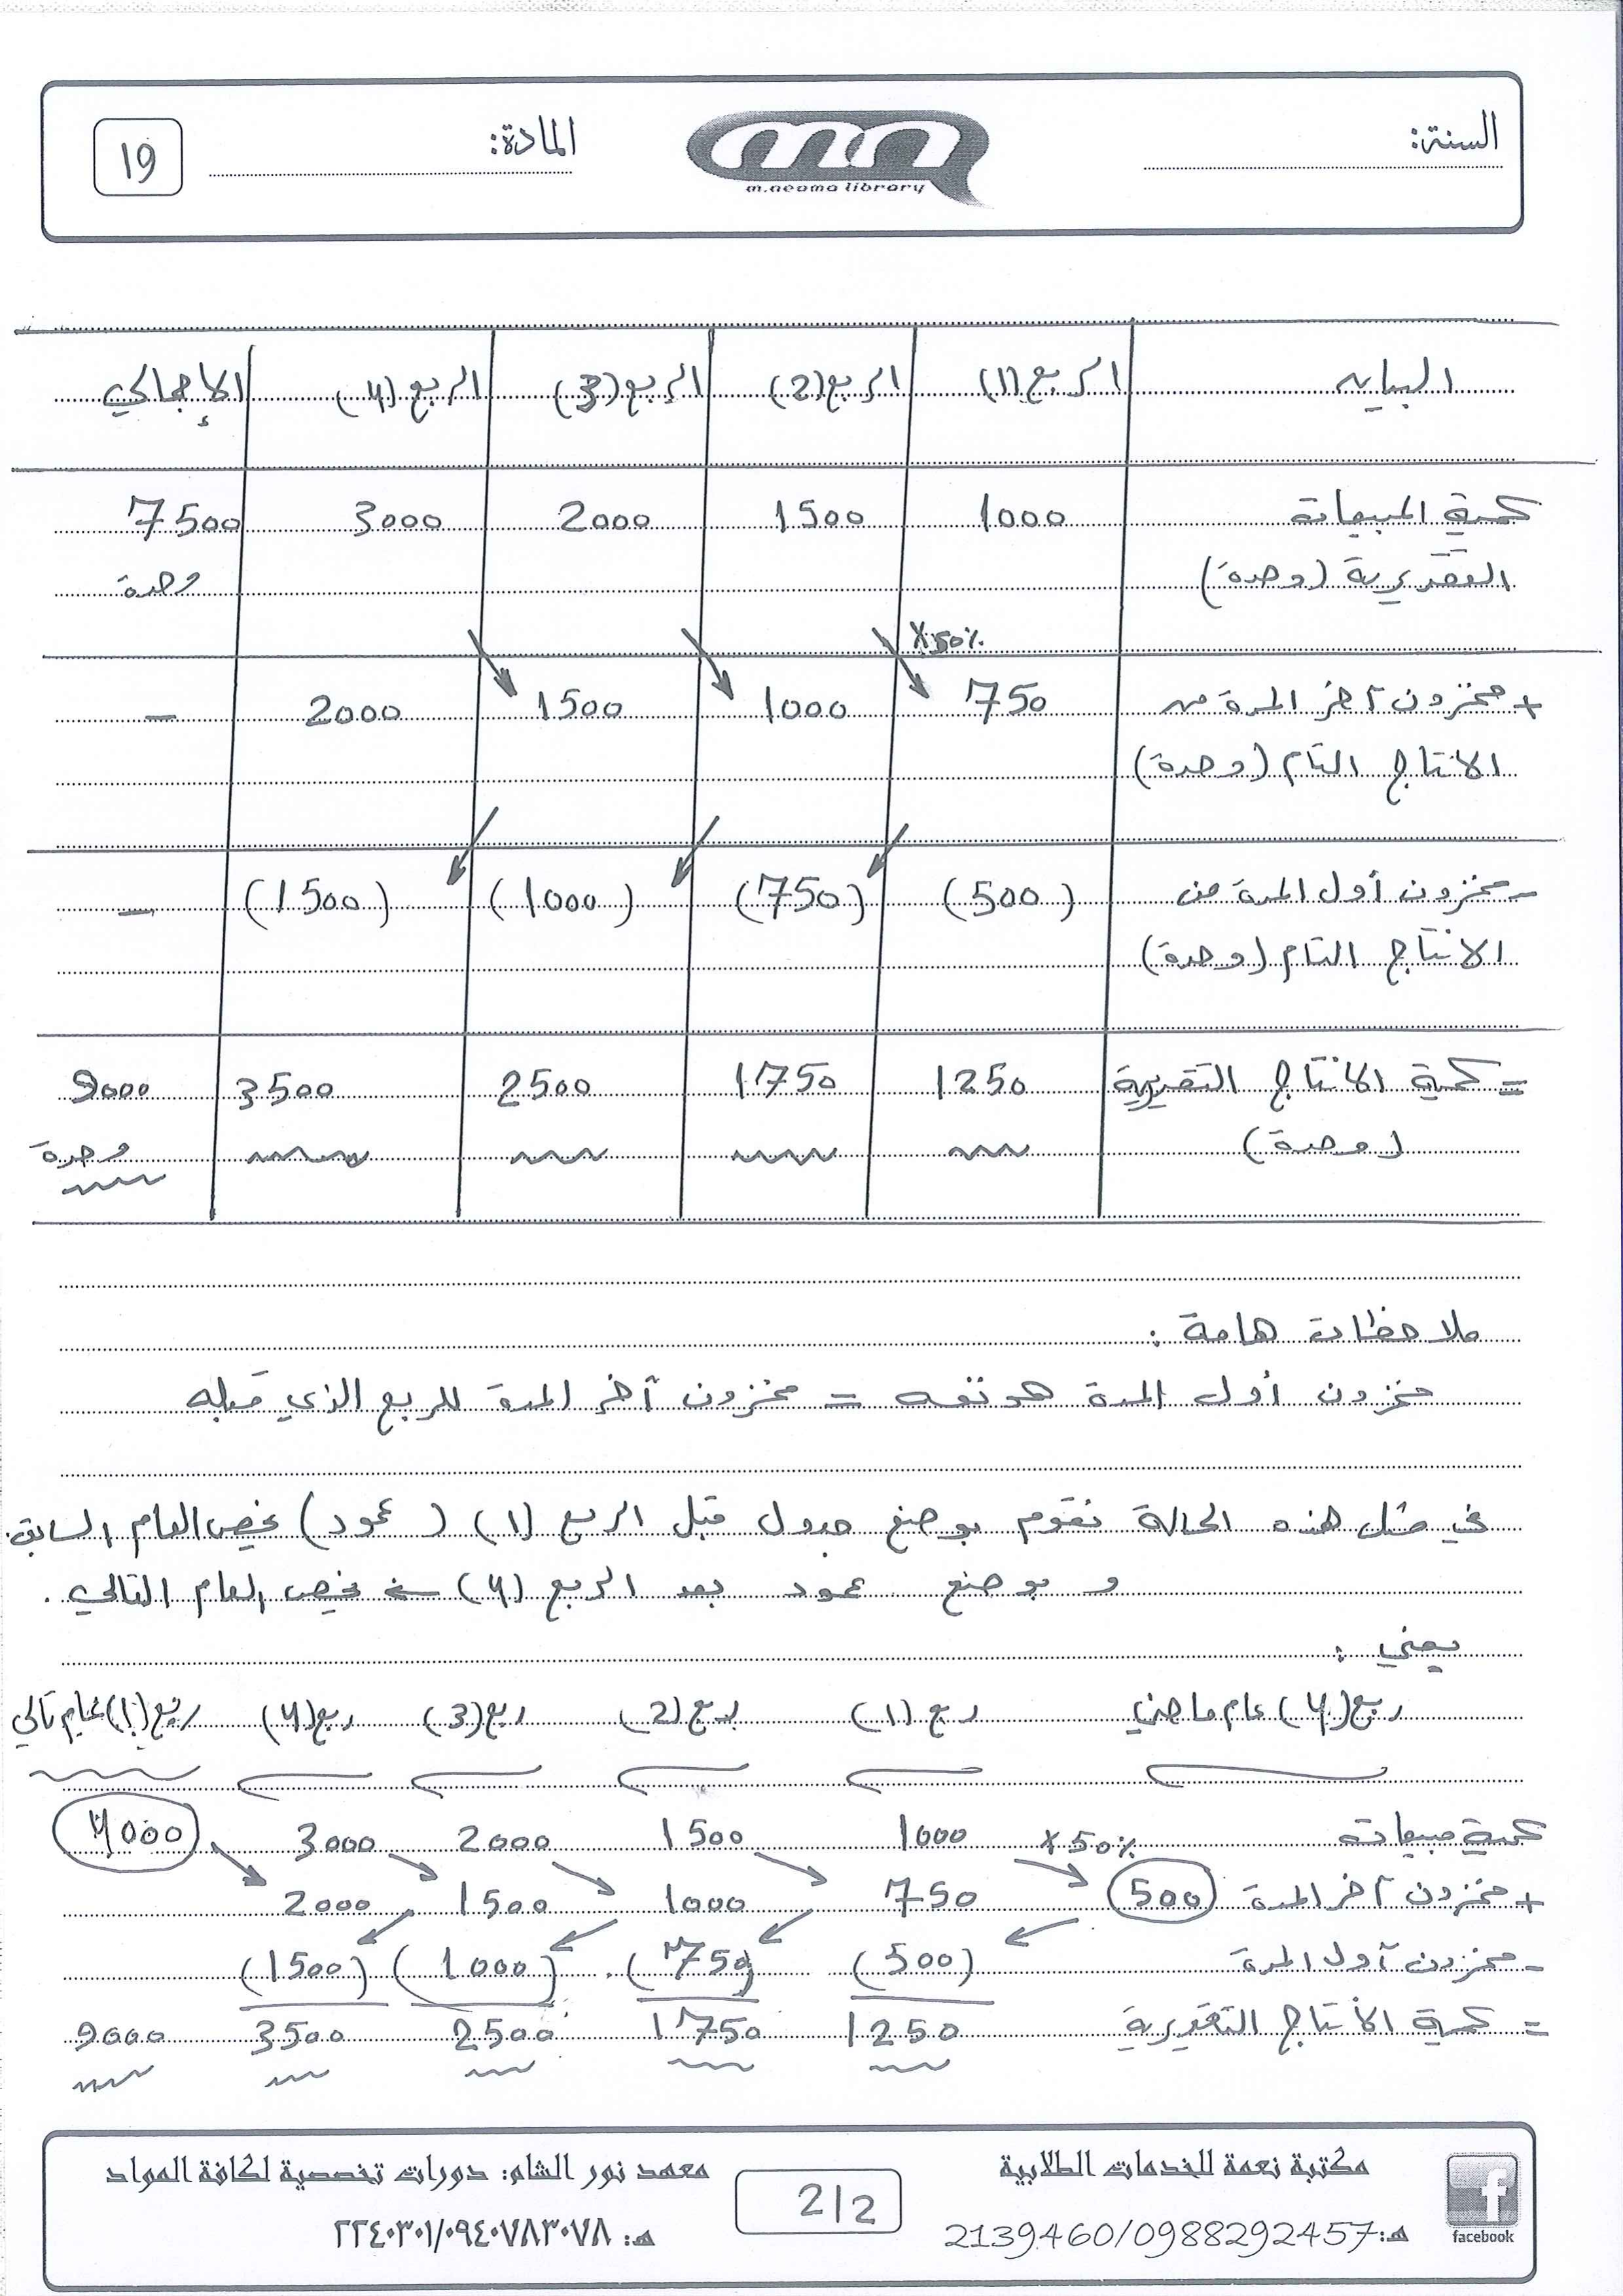 السنة:
m.neama library
المادة:
19
البيان الربع (1) الربع (2) الربع (3) الربع (4) الإجمالي
كمية المبيعات 1000 1500 2000 3000 7500
التقديرية (وحدة) وحدة
X 50%
+ مخزون آخر المدة من 750 1000 1500 2000 –
الانتاج التام (وحدة)
- مخزون أول المدة من (500) (750) (1000) (1500) –
الانتاج التام (وحدة)
= كمية الانتاج التقديرية 1250 1750 2500 3500 9000
(وحدة) وحدة
ملاحظات هامة :
مخزون أول المدة هو نفسه = مخزون آخر المدة للربع الذي قبله
في مثل هذه الحالة نقوم بوضع جدول قبل الربع (1) (عمود) يخص العام السابق.
و بوضع عمود بعد الربع (4) يخص العام التالي .
يعني :
ربع (4) عام ماضي ربع (1) ربع (2) ربع (3) ربع (4) ربع (1) عام تالي
كمية مبيعات X 50% 1000 1500 2000 3000 4000
+ مخزون آخر المدة 500 750 1000 1500 2000
- مخزون أول المدة (500) (750) (1000) (1500)
= كمية الانتاج التقديرية 1250 1750 2500 3500 9000
مكتبة نعمة للخدمات الطلابية
هـ: 2139460/0988292457
facebook
2/2
معهد نور الشام: دورات تخصصية لكافة المواد
هـ: ٢٢٤٠٣٠١/٠٩٤٠٧٨٣٠٧٨